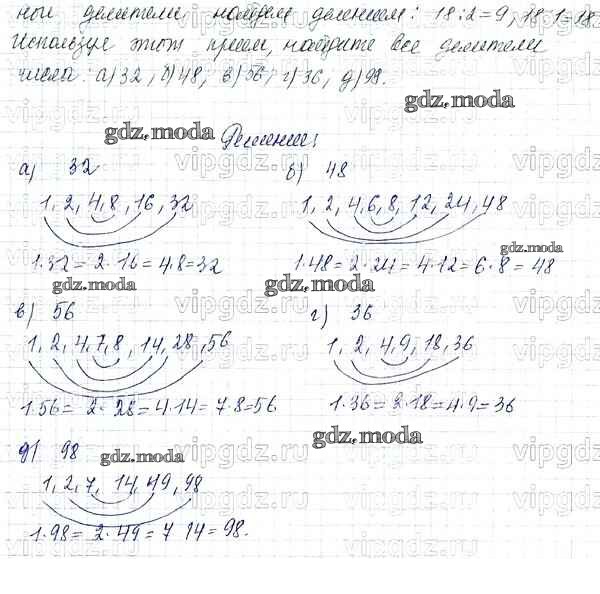 ной делители, находим делением: 18:2=9, 18:1=18
Используя этот прием, найдите все делители
числа: а) 32, б) 48, в) 56, г) 36, д) 98.
gdz.moda
gdz.moda
Решение:
а) 32
1, 2, 4, 8, 16, 32
1·32=2·16=4·8=32
б) 48
1, 2, 4, 6, 8, 12, 24, 48
gdz.moda
1·48=2·24=4·12=6·8=48
gdz.moda
gdz.moda
в) 56
1, 2, 4, 7, 8, 14, 28, 56
1·56=2·28=4·14=7·8=56
г) 36
1, 2, 4, 9, 18, 36
1·36=2·18=4·9=36
gdz.moda
д) 98
gdz.moda
1, 2, 7, 14, 49, 98
1·98=2·49=7 14=98.
vipgdz.ru